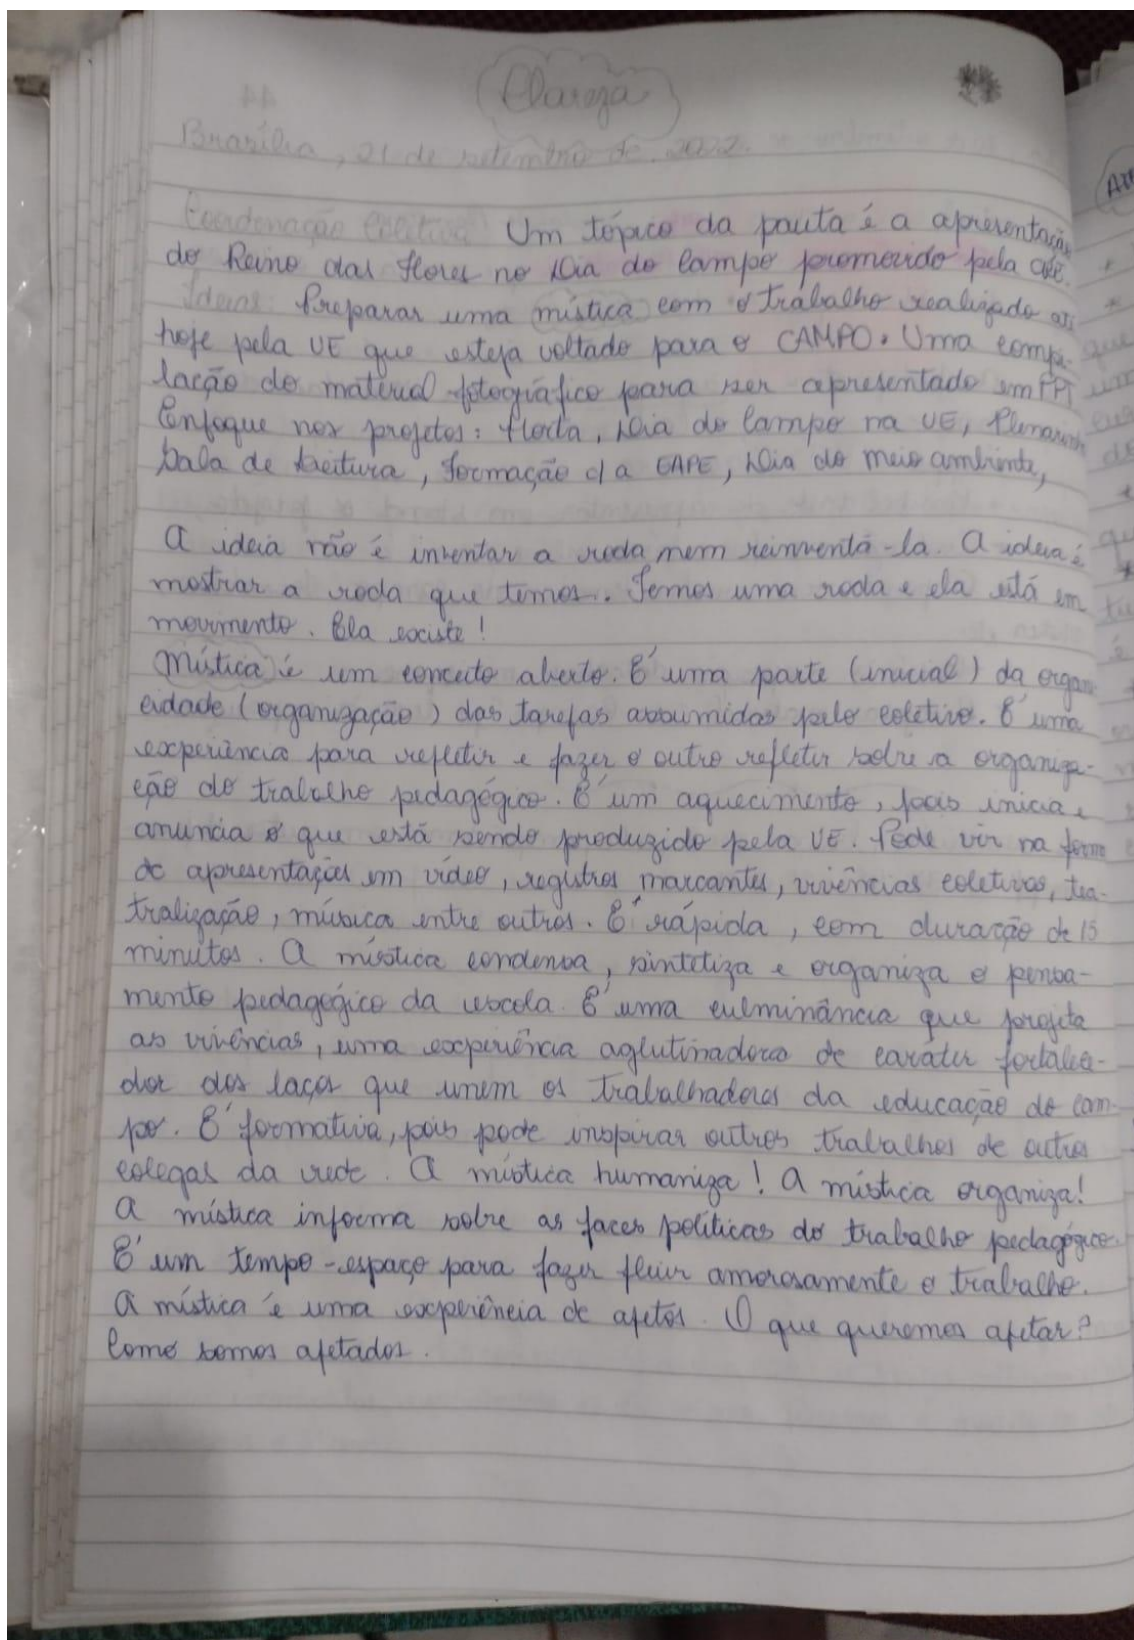 Clareza
Brasília, 21 de setembro de 2022.
Coordenação Coletiva Um tópico da pauta é a apresentação
do Reino das Flores no Dia do Campo promovido pela
Ideias: Preparar uma mística com o trabalho realizado até
hoje pela UE que esteja voltado para o CAMPO. Uma compi-
lação do material fotográfico para ser apresentado em PPT
Enfoque nos projetos: Horta, Dia do Campo na UE, Plenarinha
Sala de Leitura, Formação c/ a EAPE, Dia do meio ambiente,
A ideia não é inventar a roda nem reinventá-la. A ideia é
mostrar a roda que temos. Temos uma roda e ela está em
movimento. Ela existe!
Mística é um conceito aberto. É uma parte (inicial) da organi-
cidade (organização) das tarefas assumidas pelo coletivo. É uma
experiência para refletir e fazer o outro refletir sobre a organiza-
ção do trabalho pedagógico. É um aquecimento, pois inicia e
anuncia o que está sendo produzido pela UE. Pode vir na forma
de apresentações em vídeo, registros marcantes, vivências coletivas, tea-
tralização, música entre outros. É rápida, com duração de 15
minutos. A mística condensa, sintetiza e organiza o pensa-
mento pedagógico da escola. É uma culminância que projeta
as vivências, uma experiência aglutinadora de caráter fortalece-
dor dos laços que unem os trabalhadores da educação do cam-
po. É formativa, pois pode inspirar outros trabalhos de outros
colegas da rede. A mística humaniza! A mística organiza!
A mística informa sobre as faces políticas do trabalho pedagógico.
É um tempo-espaço para fazer fluir amorosamente o trabalho.
A mística é uma experiência de afetos. O que queremos afetar?
Como somos afetados.